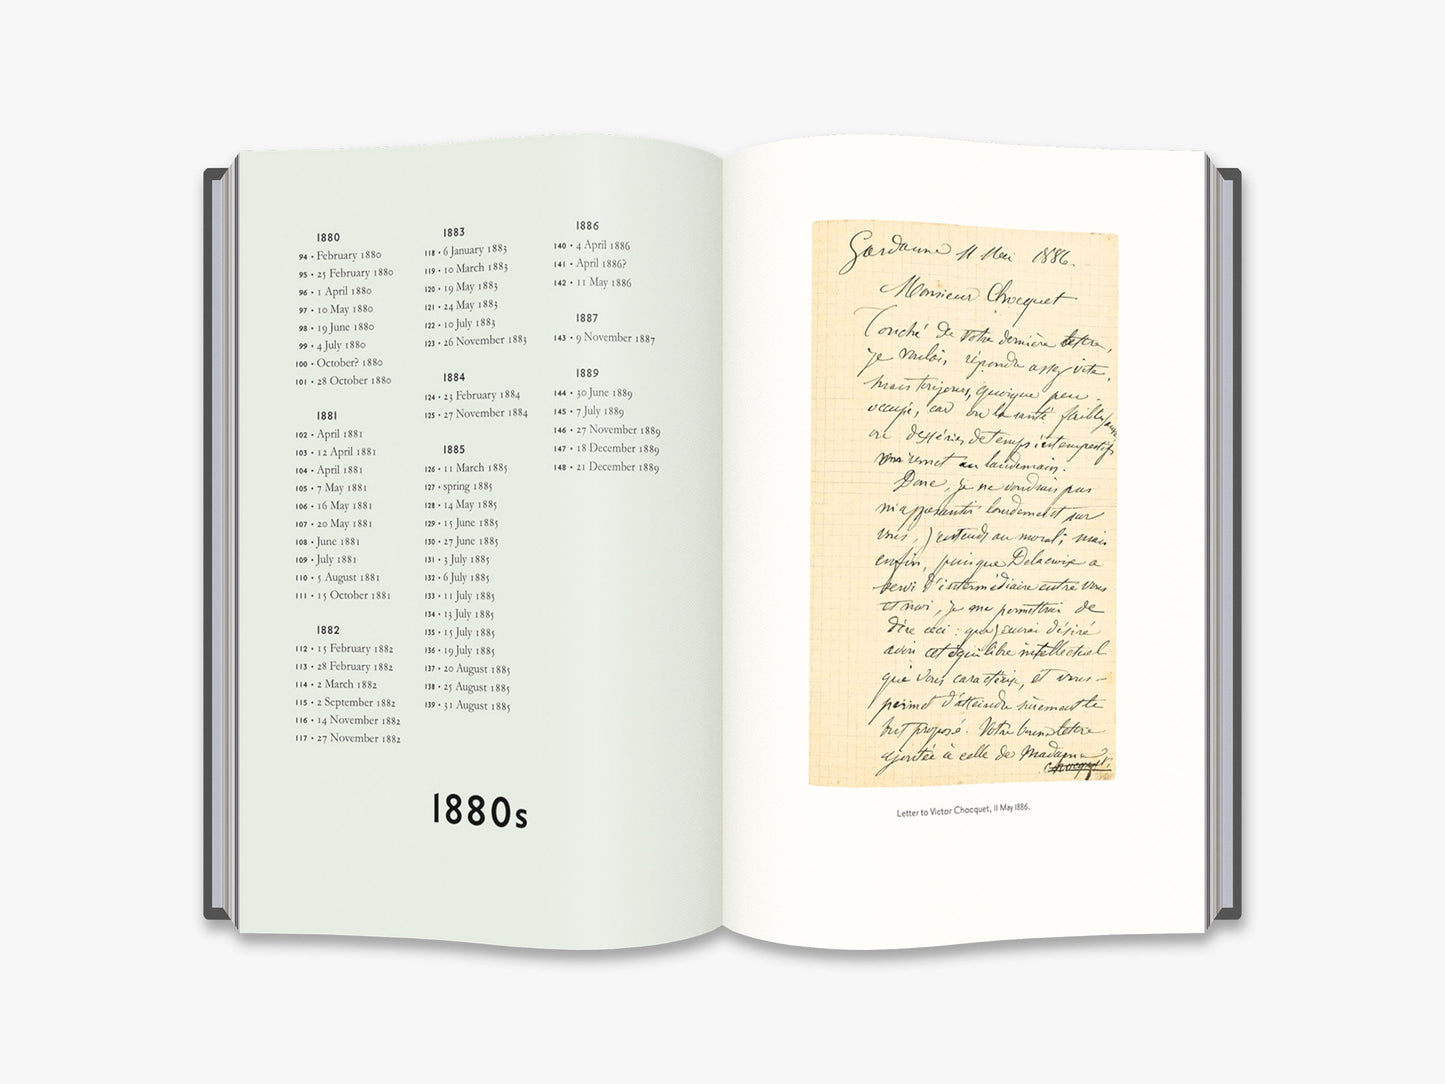 1880
94 • February 1880
95 • 25 February 1880
96 • 1 April 1880
97 • 10 May 1880
98 • 19 June 1880
99 • 4 July 1880
100 • October? 1880
101 • 28 October 1880
1881
102 • April 1881
103 • 12 April 1881
104 • April 1881
105 • 7 May 1881
106 • 16 May 1881
107 • 20 May 1881
108 • June 1881
109 • July 1881
110 • 5 August 1881
111 • 15 October 1881
1882
112 • 15 February 1882
113 • 28 February 1882
114 • 2 March 1882
115 • 2 September 1882
116 • 14 November 1882
117 • 27 November 1882
1883
118 • 6 January 1883
119 • 10 March 1883
120 • 19 May 1883
121 • 24 May 1883
122 • 10 July 1883
123 • 26 November 1883
1884
124 • 23 February 1884
125 • 27 November 1884
1885
126 • 11 March 1885
127 • spring 1885
128 • 14 May 1885
129 • 15 June 1885
130 • 27 June 1885
131 • 3 July 1885
132 • 6 July 1885
133 • 11 July 1885
134 • 13 July 1885
135 • 15 July 1885
136 • 19 July 1885
137 • 20 August 1885
138 • 25 August 1885
139 • 31 August 1885
1886
140 • 4 April 1886
141 • April 1886?
142 • 11 May 1886
1887
143 • 9 November 1887
1889
144 • 30 June 1889
145 • 7 July 1889
146 • 27 November 1889
147 • 18 December 1889
148 • 21 December 1889
1880s
Gardanne 11 Mai 1886.
Monsieur Chocquet
Touché de votre dernière lettre,
je voulais répondre assez vite,
mais toujours, quoique peu
occupé, car ou la santé faiblissante
ou des séries de temps intempestifs
vous remet au lendemain.
Donc, je ne voudrais pas
m'appesantir lourdement sur
vous, j'entends au moral; mais
enfin, puisque Delacroix a
servi d'intermédiaire entre vous
et moi, je me permettrai de
dire ceci : que j'eurai désiré
avoir cet équilibre intellectuel
que vous caractérise, et vous
permet d'atteindre sûrement le
but proposé. Votre bonne lettre
ajoutée à celle de Madame
Chocquet
Letter to Victor Chocquet, 11 May 1886.